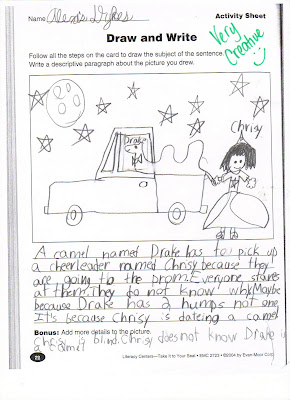 Name Alexis Dykes
Activity Sheet
Draw and Write
Follow all the steps on the card to draw the subject of the sentence.
Write a descriptive paragraph about the picture you drew.
Very
Creative
Chrisy
Drake
A camel named Drake has to pick up
a cheerleader named Chrisy because they
are going to the prom. Everyone stares
at them. They do not know why. Maybe
because Drake has 2 humps not one.
It's because Chrisy is dateing a camel
Bonus: Add more details to the picture.
Chrisy is blind. Chrisy does not know Drake is
a camel
72
Literacy Centers—Take It to Your Seat • EMC 2723 • ©2004 by Evan-Moor Corp.